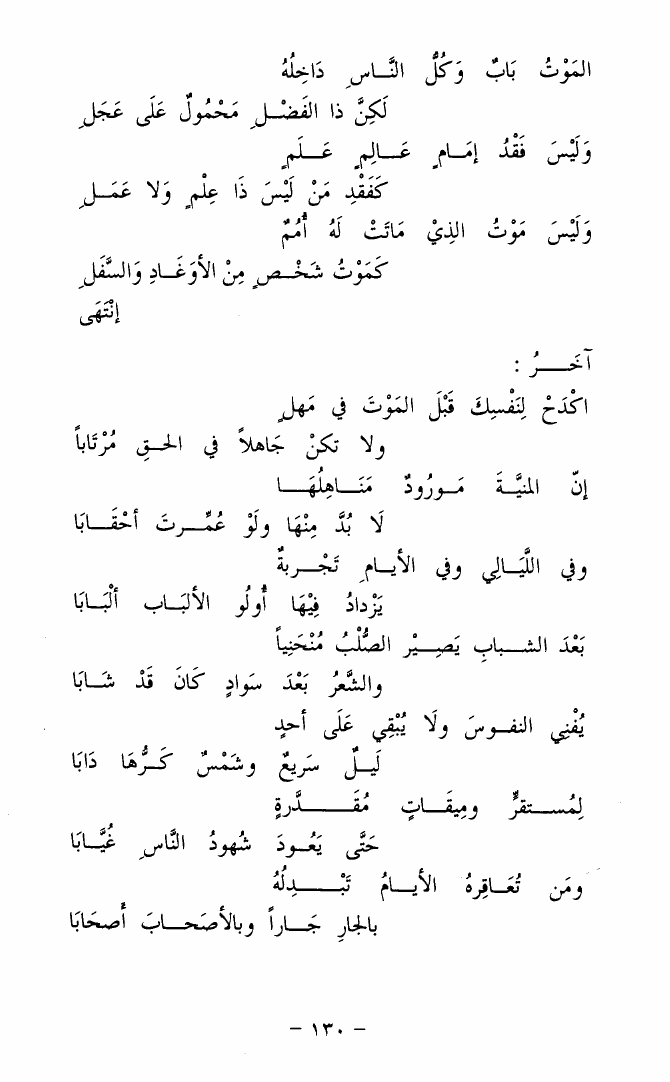 المَوْتُ بَابٌ وَكُلُّ النَّاسِ دَاخِلُهُ
لَكِنَّ ذا الفَضْلِ مَحْمُولٌ عَلَى عَجَلِ
وَلَيْسَ فَقْدُ إمَامٍ عَالِمٍ عَلَمٍ
كَفَقْدِ مَنْ لَيْسَ ذَا عِلْمٍ وَلا عَمَلِ
وَلَيْسَ مَوْتُ الذِيْ مَاتَتْ لَهُ أُمَمٌ
كَمَوْتُ شَخْصٍ مِنْ الأوَغَادِ وَالسَّفَلِ
إنْتَهَى
آخَرُ :
اكْدَحْ لِنَفْسِكَ قَبْلَ المَوْتَ في مَهلٍ
ولا تكنْ جَاهلاً في الحقِ مُرْتَاباً
إنّ المنيَّةَ مَورُودٌ مَنَاهِلُهَا
لَا بُدَّ مِنْهَا ولَوْ عُمِّرتَ أحْقَابَا
وفي اللَّيَالِي وفي الأيامِ تَجْربةٌ
يَزْدادُ فِيْهَا أُولُو الألبابِ ألْبَابَا
بَعْدَ الشبابِ يَصِيْر الصُّلْبُ مُنْحَنِياً
والشَّعرُ بَعْدَ سَوادٍ كَانَ قَدْ شَابَا
يُفْنِي النفوسَ ولَا يُبْقِي عَلَى أحدٍ
لَيلٌ سَرِيعٌ وشَمْسٌ كَرُّهَا دَابَا
لِمُستقرٍّ ومِيقَاتٍ مُقَدَّرةٍ
حَتَّى يَعُودَ شُهودُ النَّاسِ غُيَّابَا
ومَن تُعَاقِرهُ الأيامُ تَبْدِلُهُ
بالجارِ جَاراً وبالأصَحابَ أصحَابَا
– ١٣٠ –